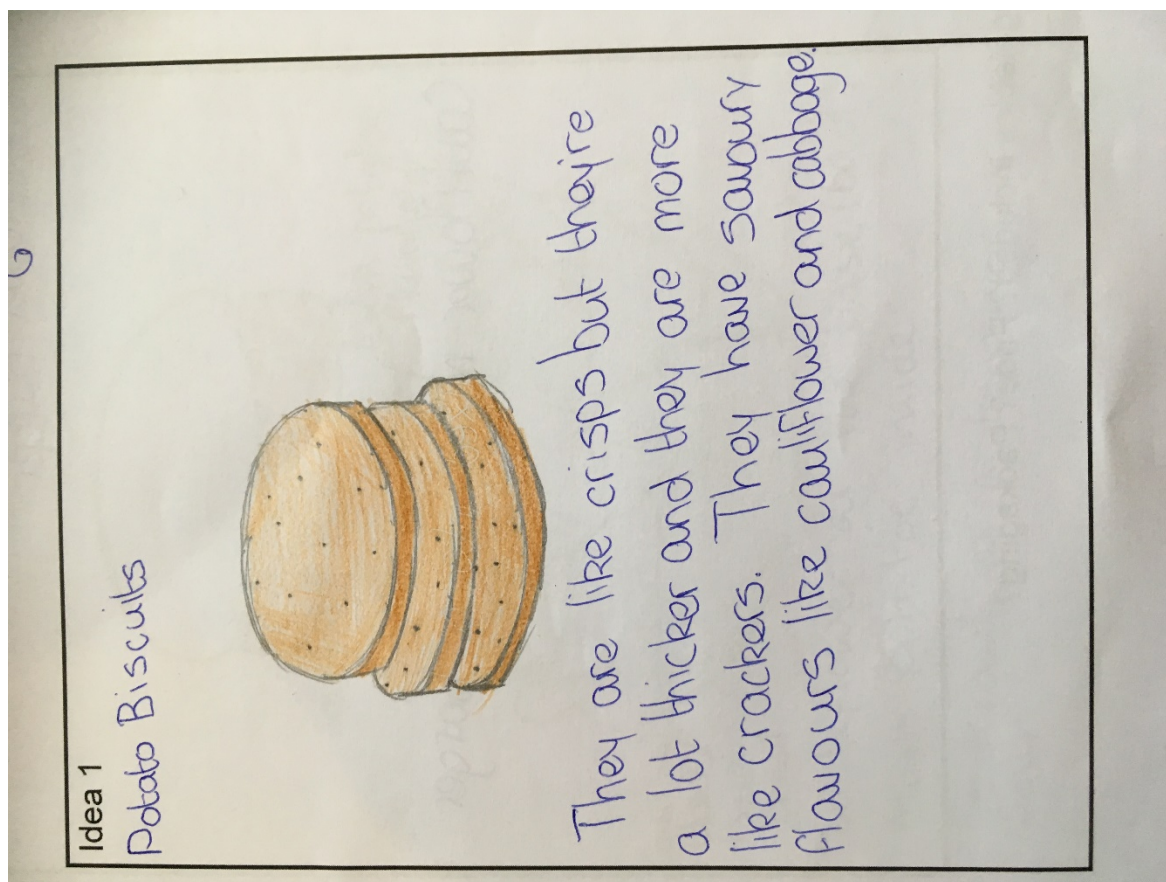 Idea 1
Potato Biscuits
They are like crisps but they're
a lot thicker and they are more
like crackers. They have savoury
flavours like cauliflower and cabbage.